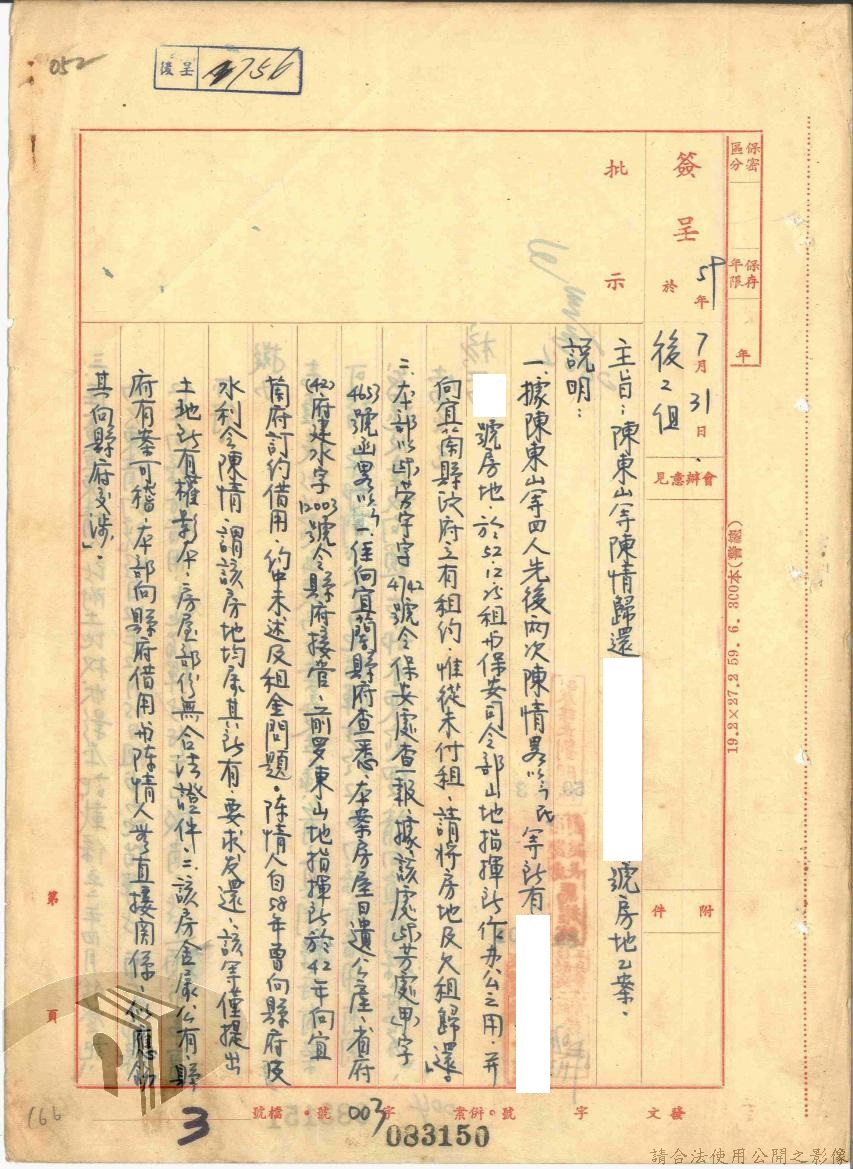 052
後呈 4756
保密區分
保存年限
年
簽呈
於 59 年 7 月 31 日
後乙組
會辦意見
附件
批示
主旨：陳東山等陳情歸還
號房地乙案。
說明：
一、據陳東山等四人先後兩次陳情畧以「民等所有
號房地，於52.12.
租与保安司令部山地指揮所作办公之用，并
向宜蘭縣政府立有租約，惟從未付租，請將房地及欠租歸還」
二、本部以
字4742號令保安處查報，據該處
字
4653號函畧以「一、經向宜蘭縣府查悉，本案房屋日遺公產，省府
(42)府建水字12003號令縣府接管，前罗東山地指揮所於42年向宜
蘭府訂約借用，約中未述及租金問題。陳情人自58年曾向縣府及
水利会陳情，謂該房地均屬其所有，要求发還，該等僅提出
土地所有權影本，房屋部份無合法證件。二、該房舍屬公有，縣
府有案可稽，本部向縣府借用与陳情人無直接関係，似應令
其向縣府交涉」。
第 頁
發文 字 號。併案 字 003 號。檔號 3
083150
166
19.2×27.2 59. 6. 300本(警總)
請合法使用公開之影像